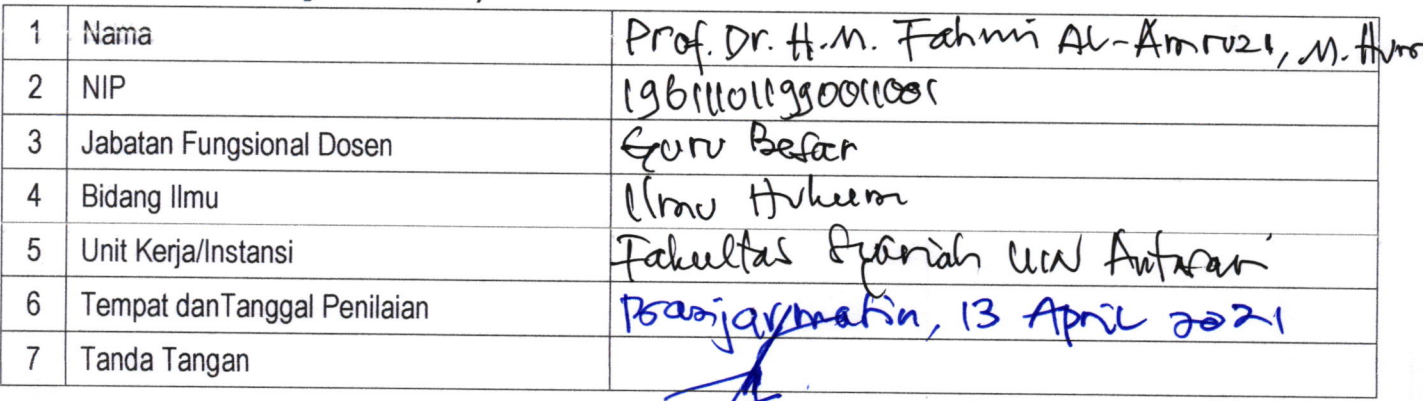 1 Nama Prof. Dr. H.M. Fahmi Al-Amruzi, M. Hum
2 NIP 196111011990011001
3 Jabatan Fungsional Dosen Guru Besar
4 Bidang Ilmu Ilmu Hukum
5 Unit Kerja/Instansi Fakultas Syariah UIN Antasari
6 Tempat danTanggal Penilaian Banjarmasin, 13 April 2021
7 Tanda Tangan